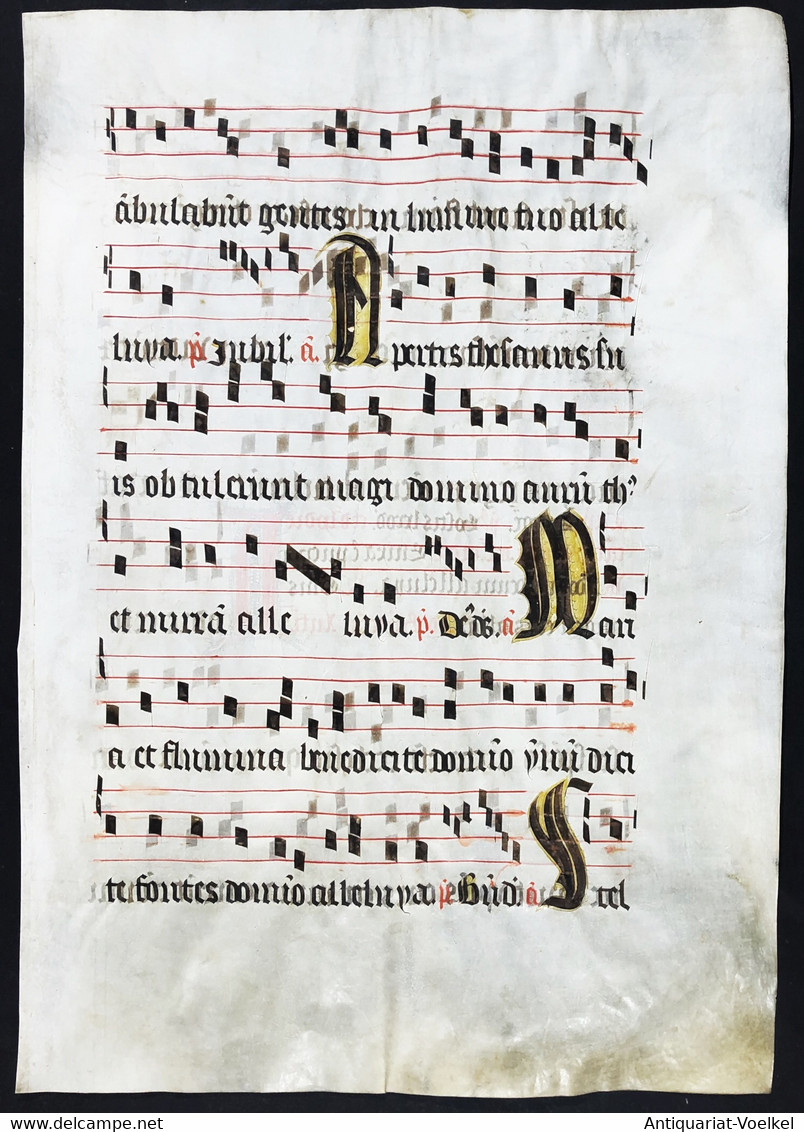 ābulabūt gentes in lumine tuo alle
luya. p̄s Jubil'. ā. Apertis thesauris su
is obtulerunt magi domino aurū th⁹
et mirrā alle luya. p̄. De⁹ ds̄. ā Mari
a et flumina benedicite domīo ym̄ū dici
te fontes domīo alleluya p̄s Bn̄d ā Stel
www.delcampe.net
Antiquariat-Voelkel